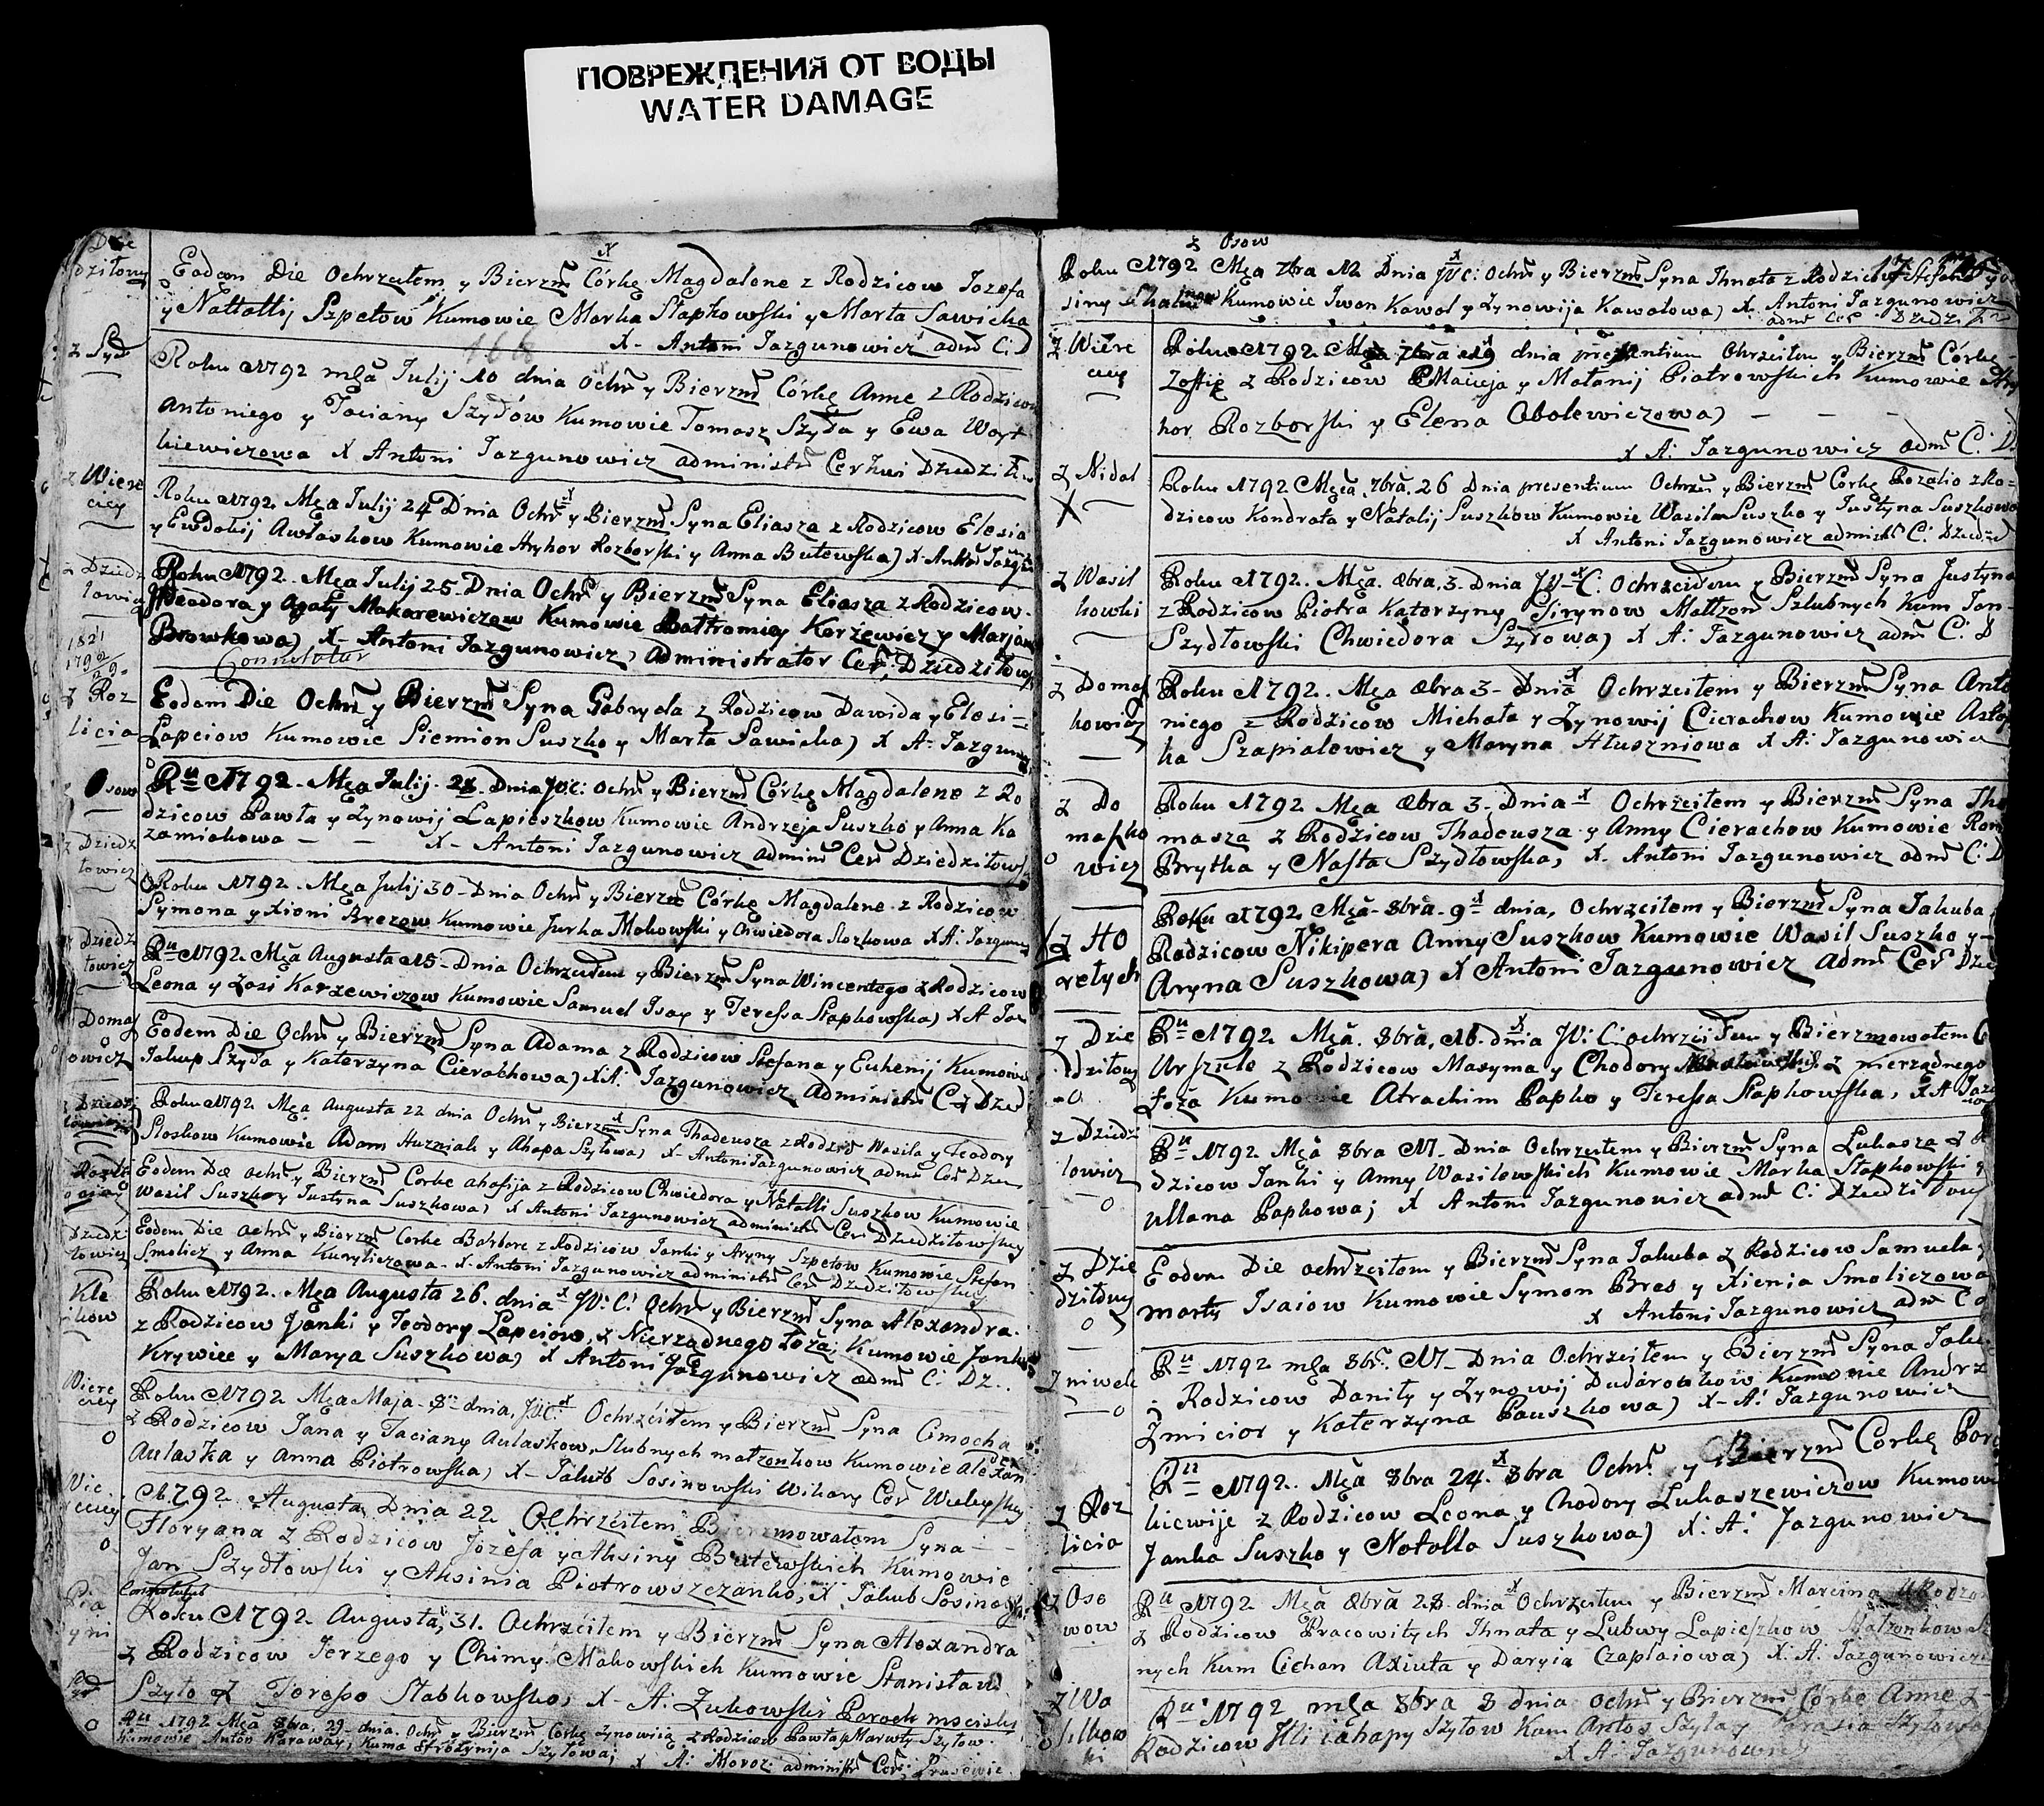 ПОВРЕЖДЕНИЯ ОТ ВОДЫ
WATER DAMAGE
dziłowy
Eodem Die Ochrzciłem y Bierzm Córkę Magdalone z Rodzicow Jozefa
y Nattallij Szpetow Kumowie Marka Stapkowski y Marta Sawicka
X- Antoni Jazgunowicz adm C:
z Szył
Roku 1792 męa Julij 10 dnia Ochr y Bierzm Córkę Anne z Rodzicow
Antoniego y Taciany Szyłów Kumowie Tomasz Szyła y Ewa Woyt
kiewiczowa X Antoni Jazgunowicz administr Cerkwi Dziedził
z Wiere
ciey
Roku 1792 Męa Julij 24 Dnia Ochr y Bierzm Syna Eliasza z Rodzicow Elesia
y Ewdokij Awłaskow Kumowie Hryhor Rozborski y Anna Butewska) X Anton Jazgu
z Dziedz
łowicz
Roku 1792. Męa Julij 25 Dnia Ochr y Bierzm Syna Eliasza z Rodzicow
Theodora y Agaty Makarewiczow Kumowie Bałtromiey Korżewicz y Marjana
Browkowa) X- Antoni Jazgunowicz Administrator Cer: Dziedziłow
1821
1792
29
Connotatur
z Roz
licia
Eodem Die Ochr y Bierzm Syna Gabryela z Rodzicow Dawida y Elesi=
Łapciow Kumowie Siemion Suszko y Marta Sawicka) X A: Jazgun
Osow
Ru 1792. Męa Julij. 28. Dnia JW:C: Ochr y Bierzm Córkę Magdalene z Ro
dzicow Pawła y Zynowij Łapieszkow Kumowie Andrzeja Suszko y Anna Ka
zamiakowa — — X- Antoni Jazgunowicz admin Cer Dziedziłows
z Dziedz
łowicz
Roku 1792. Męa Julij 30 Dnia Ochr y Bierzm Córkę Magdalene z Rodzicow
Symona y Xioni Brezow Kumowie Jurka Mokowski y Chwiedora Slozkowa X A: Jazguno
Dziedz
łowicz
Ru 1792. Męa Augusta 15 Dnia Ochrzciłem y Bierzm Syna Wincentego z Rodzicow
Leona y Zosi Korzewiczow Kumowie Samuel Isay y Teressa Stapkowska) X A Jaz
Domas
owicz
Eodem Die Ochr y Bierzm Syna Adama z Rodzicow Stefana y Euhenij Kumowie
Jakup Szyła y Katerzyna Cierachowa) X A: Jazgunowicz Administr C: Dzied
Roku 1792 Męa Augusta 22 dnia Ochr y Bierzm Syna Thadeusza z Rodzic Wasila y Teodory
Sloskow Kumowie Adam Huzniak y Ahapa Szyłowa) X- Antoni Jazgunowicz adm Cer Dzie
Eodem Die ochr y Bierzm Corke ahafija z Rodzicow Chwiedora y Natalli Suszkow Kumowie
Wasil Suszko y Justyna Suszkowa) X Antoni Jazgunowicz administr Cer Dziedziłowskiey
Dziedz
łowicz
Eodem Die Ochr y Bierzm Corke Barbare z Rodzicow Janki y Aryny Szpetow Kumowie Stefan
Smolicz y Anna Kuryliczowa. X Antoni Jazgunowicz administr Cer Dziedziłowskiey
Kle
ikow
Roku 1792. Męa Augusta 26. dnia JW: C: Ochr y Bierzm Syna Alexandra
z Rodzicow Janki y Teodory Łapciow, z Nierządnego Łoża, Kumowie Janka
Krywiec y Marya Suszkowa) X Antoni Jazgunowicz adm C: Dz..
Wiere
ciey
Roku 1792 Męa Maja 8 dnia, JWC. Ochrzciłem y Bierzm Syna Cimocha
z Rodzicow Jana y Taciany Aulaskow, Slubnych małzonkow Kumowie Alexan
Aulaska y Anna Piotrowska) X- Jakub Sosinowski Wikary Cer
1792 Augusta Dnia 22 Ochrzciłem Bierzmowałem Syna —
Floryana z Rodzicow Józefa y Aksiny Butewskich Kumowie
Jan Szydłowski y Aksinia Piotrowszczanka, X. Jakub Sosinows
Connotatur
Roku 1792 Augusta, 31. Ochrzciłem y Bierzm Syna Alexandra
z Rodzicow Jerzego y Chimy Makowskich Kumowie Stanisław
Szyło z Teresso Stabkowsko, X- A: Zukowski Paroch mscisły
Ru 1792 Męa 8bra, 29 dnia. Ochr y Bierzm Córkę Zynowią z Rodzicow Pawła y Maruty Szyłow
Kumowie Anton Karaway, Kuma Szyłowa;
X A: Moroz administr Cer: Prusowic
z Osow
Roku 1792 Męa 7bra 12 Dnia JW:C: Ochr y Bierzm Syna Ihnata z Rodzicow Stefana y
siny Kumowie Iwan Kawal y Zynowija Kawalowa) X Antoni Jazgunowicz
adm Cer Dziedz
z Wiere
ciey
Roku 1792. Męa 7bra 19 dnia presentium Ohrzciłem y Bierzm Córkę
Zoffię z Rodzicow Macieja y Małanij Piotrowskich Kumowie Hry
hor Rozborski y Elena Obolewiczowa) — — —
X A: Jazgunowicz adm C: D
z Nidal
X
Roku 1792 Męca, 7bra. 26 Dnia presentium Ochrzm y Bierzm Córkę Rozalio z Ro=
dzicow Kondrata y Natalij Suszkow Kumowie Wasil Suszko y Justyna Suszkowa
X Antoni Jazgunowicz administr C: Dziedzi
z Wasil
kowski
Roku 1792. Męa. 8bra. 3. Dnia JW- C. Ochrzciłem y Bierzm Syna Justyna
z Rodzicow Piotra Katerzyny Sirynow Małżon Szlubnych Kum Jan-
Szydłowski Chwiedora Szyłowa) X A: Jazgunowicz adm C: D
z Domas
kowicz
Roku 1792. Męa 8bra 3- Dnia Ochrzciłem y Bierzm Syna Anto
niego z Rodzicow Michała y Zynowij Cierachow Kumowie Astap
ka Szapialowicz y Maryna Hłuszniowa X A: Jazgunowicz
z Do
masko
wicz
Roku 1792 Męa 8bra 3- Dnia Ochrzciłem y Bierzm Syna Tho
masza z Rodzicow Thadeusza y Anny Cierachow Kumowie Rom
Brytka y Nasta Szydłowska, X- Antoni Jazgunowicz adm C: D
z Ho
relych
Roku 1792 Męa- 8bra- 9 dnia, Ochrzciłem y Bierzm Syna Jakuba
Rodzicow Nikipera Anny Suszkow Kumowie Wasil Suszko y-
Aryna Suszkowa) X Antoni Jazgunowicz Adm Cer Dzie
z Dzie
dziłowy
Ru 1792 Męa. 8bra, 16. dnia JW: C: ochrzciłem y Bierzmowałem C
Urszule z Rodzicow Maxyma y Chodory z nierządnego
Łoża Kumowie Atrachim Papko y Teressa Stapkowska, X A Jazg
z Dziedz
łowicz
Ru 1792 Męa 8bra 17- Dnia Ochrzciłem y Bierzm Syna Lukasza z R
dzicow Janki y Anny Wasilowskich Kumowie Marka Stapkowski y
Ullana Papkowa; X Antoni Jazgunowicz adm C: Dziedziłow
z Dzie
dziłowy
Eodem Die ochrzciłem y Bierzm Syna Jakuba z Rodzicow Samuela y
marty Isaiow Kumowie Symon Bres y Xienia Smoliczowa
X Antoni Jazgunowicz adm C
z niwek
Ru 1792 męa 8br. 17- Dnia Ochrzciłem y Bierzm Syna Jaku
z Rodzicow Daniły y Zynowij Dudaronkow Kumowie Andrz
Zmicior y Katerzyna Pauszkowa) X- A: Jazgunowicz
z Roz
licia
Ru 1792. Męa 8bra 24. 8bra Ochr. y Bierzm Corkę Pora
kiewije z Rodzicow Leona y Chodory Lukaszewiczow Kumowie
Janka Suszko y Natalla Suszkowa) X: A: Jazgunowicz
z Oso
wow
Ru 1792 Męa 8bra 28 dnia Ochrzciłem y Bierzm Marcina
z Rodzicow Pracowitych Ihnata y Lubwy Lapieszkow Małzonkow
nych Kum Cichan Axiuta y Daryia Czaplaiowa) X. A: Jazgunowicz
z Wa
silkow
ki
Ru 1792 męa 8bra 8 dnia ochr y Bierzm Córkę Anne z
Rodzicow Ili i ahapy Szyłow Kum Antos Szyła y Szyłowa
X A: Jazgunowicz